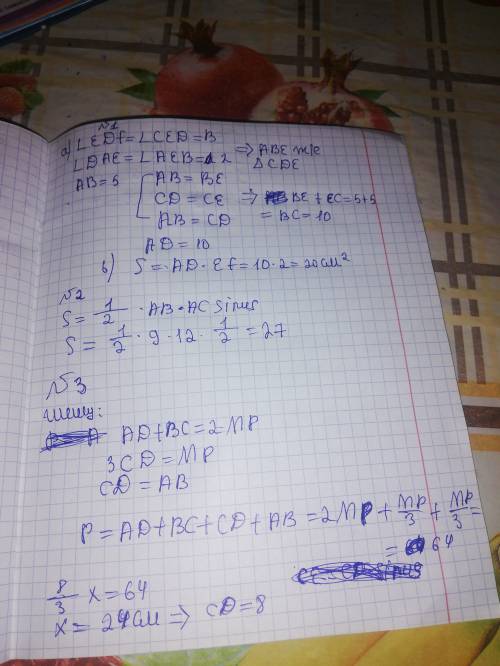 №1
a) ∠EDf = ∠CED = B
∠DAE = ∠AEB = 2 ⇒ ABE және
△CDE
AB = 5
AB = BE
CD = CE ⇒ BE + EC = 5+5
AB = CD = BC = 10
AD = 10
b) S = AD · Ef = 10 · 2 = 20 см²
№2
S = 1/2 · AB · AC sinus
S = 1/2 · 9 · 12 · 1/2 = 27
№3
Шешу:
AD + BC = 2 MP
3CD = MP
CD = AB
P = AD + BC + CD + AB = 2MP + MP/3 + MP/3 =
= 64
8/3 x = 64
x = 24 см ⇒ CD = 8